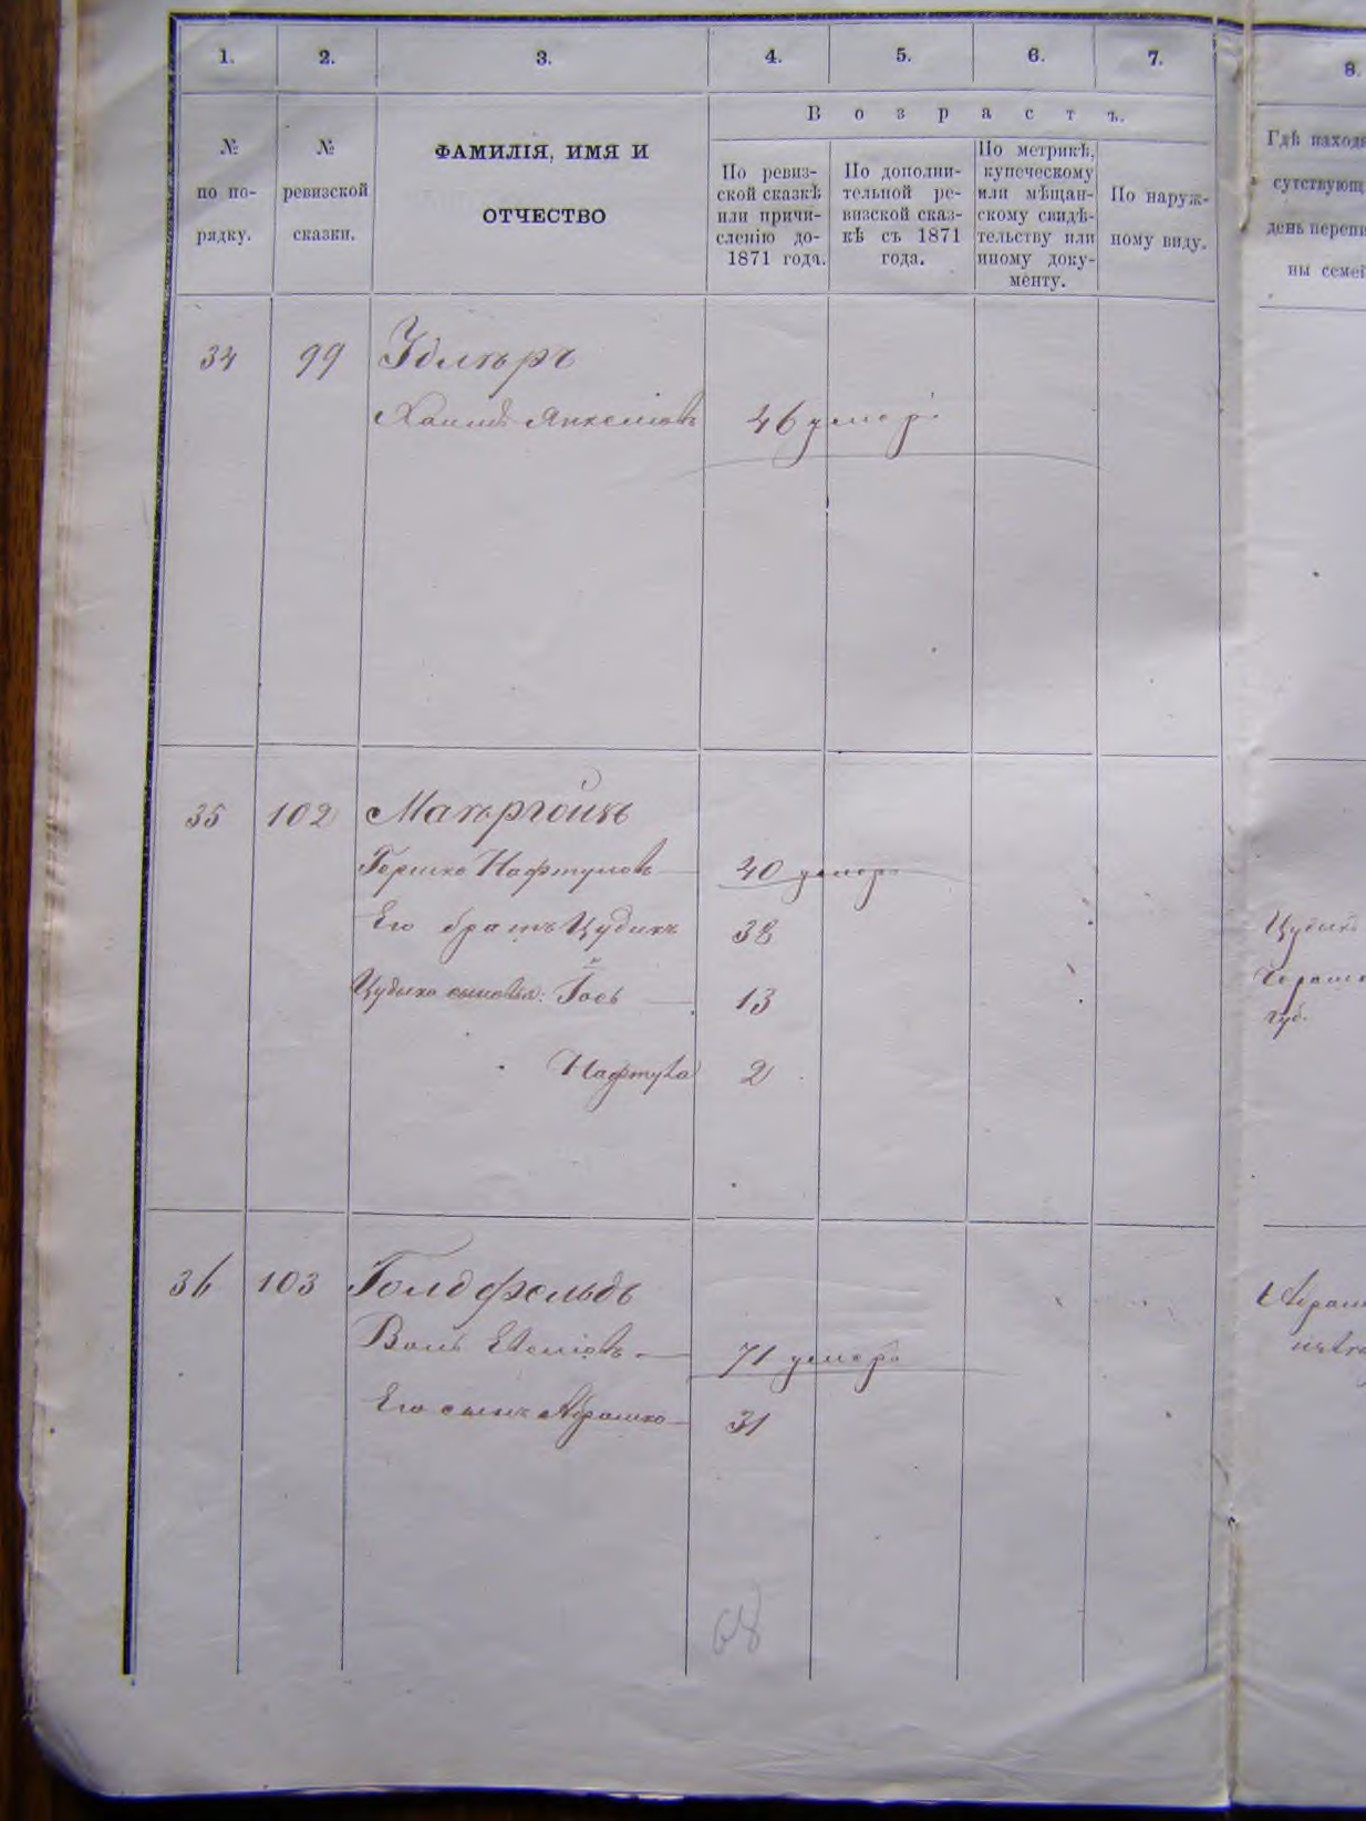 1.
2.
3.
4.
5.
6.
7.
8.
№
по по-
рядку.
№
ревизской
сказки.
ФАМИЛІЯ, ИМЯ И
ОТЧЕСТВО
Возрастъ.
По ревиз-
ской сказкѣ
или причи-
сленію до
1871 года.
По дополни-
тельной ре-
визской сказ-
кѣ съ 1871
года.
По метрикѣ,
купеческому
или мѣщан-
скому свидѣ-
тельству или
иному доку-
менту.
По наруж-
ному виду.
Гдѣ наход
сутствующ
день переп
ны семе
34 99
Янкелевъ 46 умеръ
35 102
Гершко Нафтуловъ 40 умеръ
Его братъ Цудикъ 38
Цудика сыновья: Іось 13
Нафтула 2
губ.
36 103 Голдфельдъ
71 умеръ
Его сынъ Абрашко 31
68